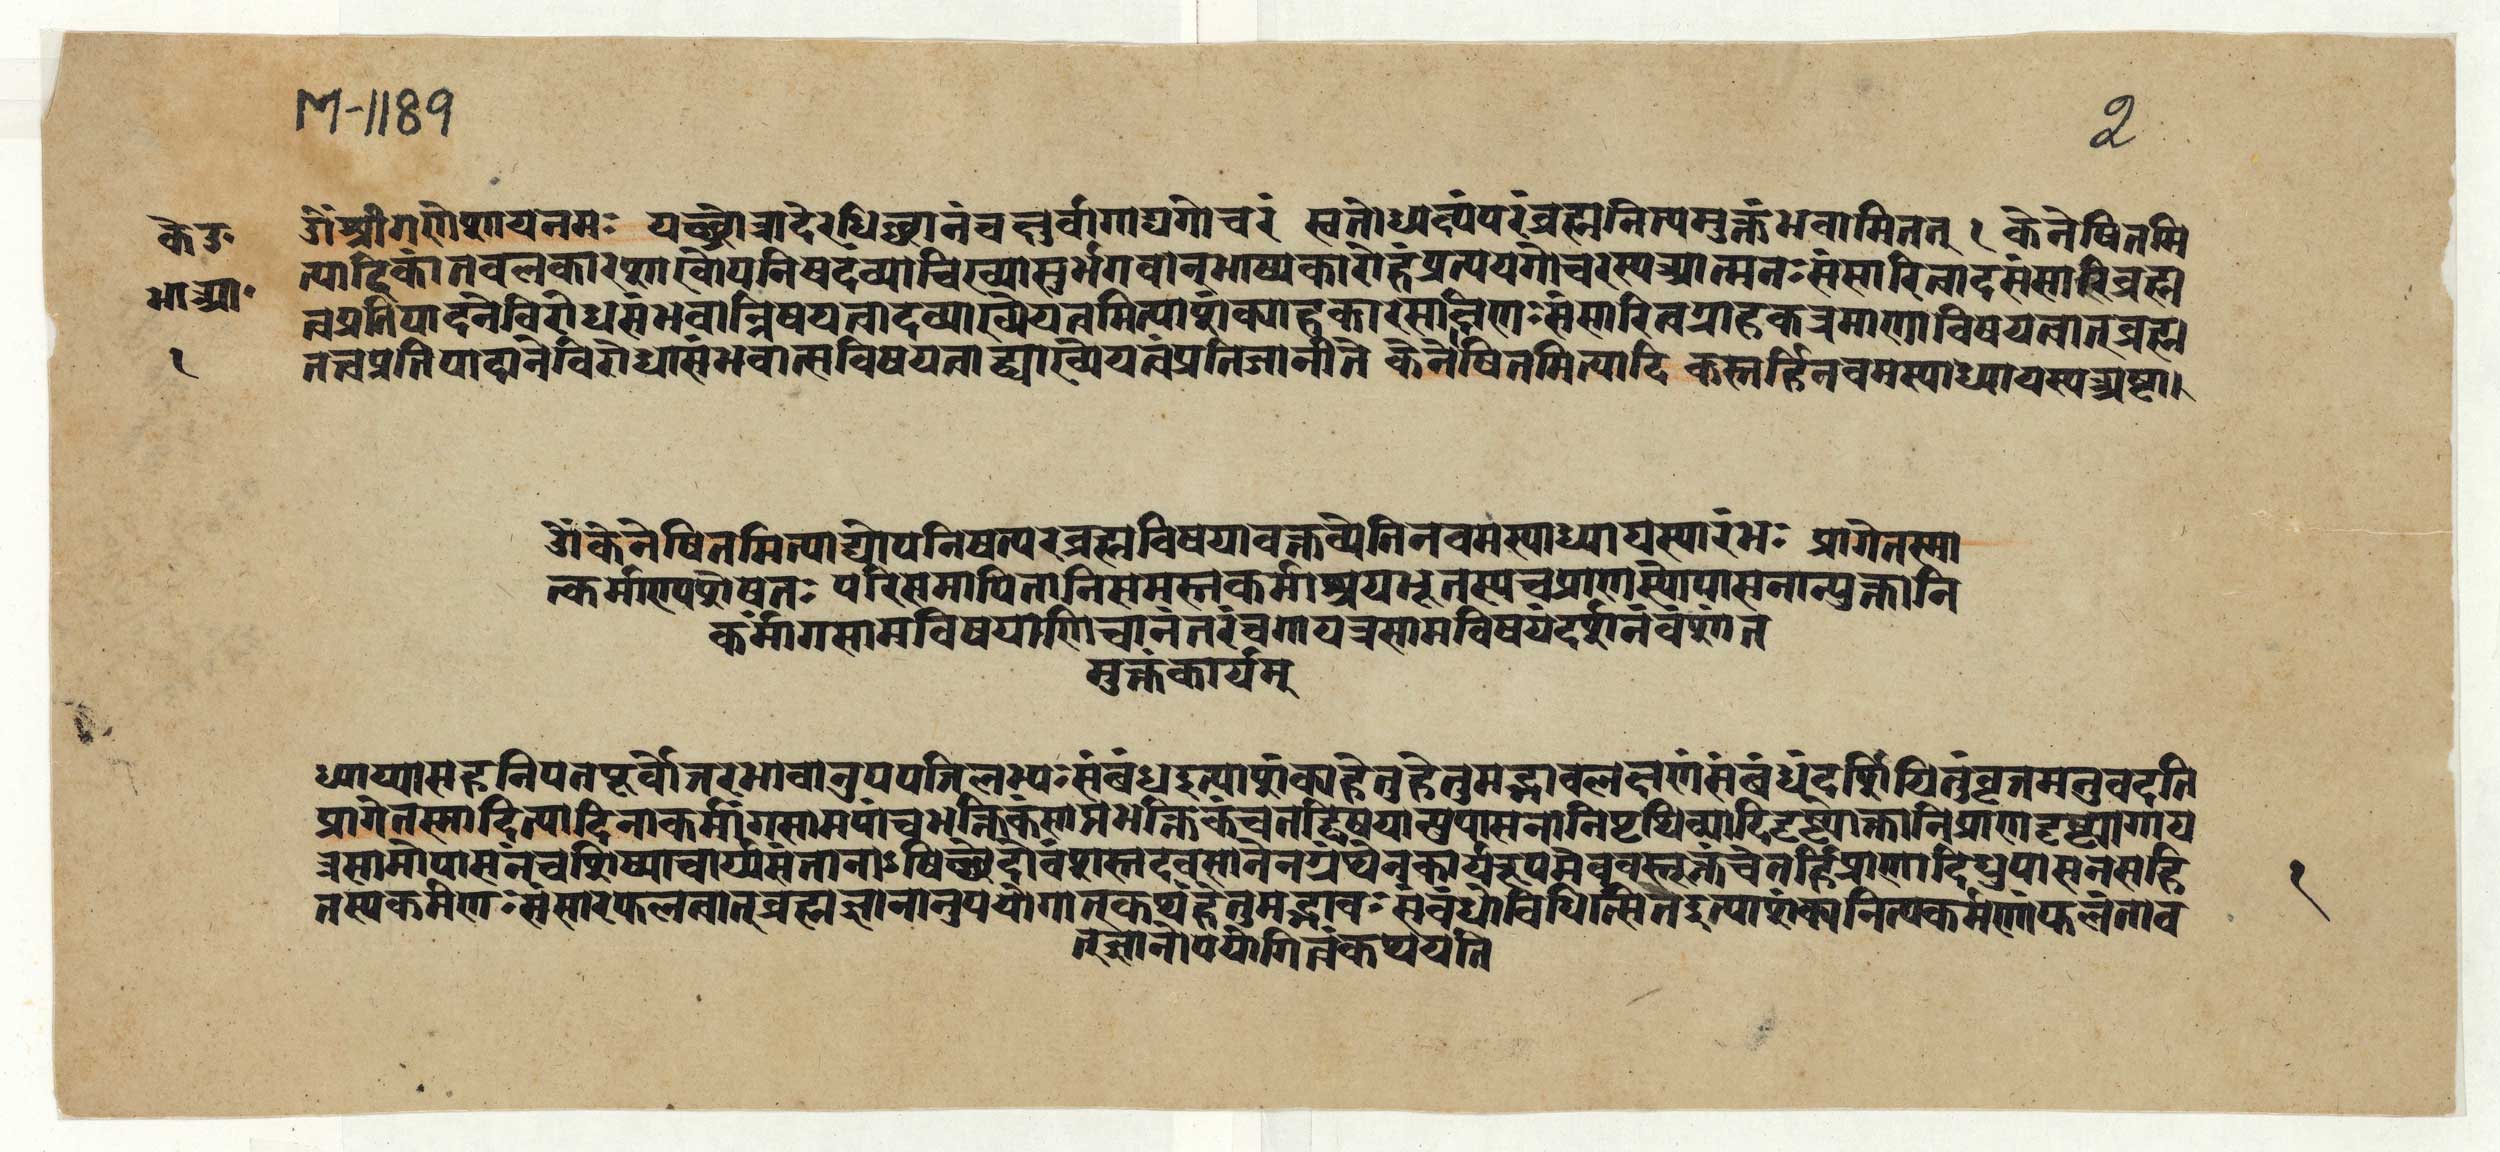 M-1189
2
के उ॰
भा आ॰
१
ॐ श्रीगणेशायनमः यच्छ्रोत्रादेरधिष्ठानंचक्षुर्वागाद्यगोचरं स्वतोध्यक्षंपरंब्रह्मनित्यमुक्तंभवामितत् १ केनेषितमि
त्यादिकांतवलकारशाखोपनिषदंव्याचिख्यासुर्भगवान्भाष्यकारोहंप्रत्ययगोचरस्यआत्मनःसंसारित्वादसंसारिब्रह्म
त्वप्रतिपादनेविरोधसंभवान्निर्विषयत्वादव्याख्येयत्वमित्याशंक्याहंकारसाक्षिणःसंसारित्वग्राहकप्रमाणाविषयत्वात्ब्रह्म
तत्वप्रतिपादनेविरोधासंभवात्सविषयत्वाद्व्याख्येयत्वंप्रतिजानीते केनेषितमित्यादि कस्तर्हिनवमस्याध्यायस्यअष्टा।
ॐकेनेषितमित्याद्योपनिषत्परब्रह्मविषयावक्तव्येतिनवमस्याध्यायस्यारंभः प्रागेतस्मा
त्कर्माण्यशेषतः परिसमापितानिसमस्तकर्माश्रयभूतस्यचप्राणस्योपासनान्युक्तानि
कर्मांगसामविषयाणिचानंतरंचगायत्रसामविषयंदर्शनंवंशांत
मुक्तंकार्यम्
ध्याय्यासहनियतपूर्वोत्तरभावानुपपत्तिलभ्यःसंबंधइत्याशंक्यहेतुहेतुमद्भावलक्षणंसंबंधंदर्शयितुंवृत्तमनुवदति
प्रागेतस्मादित्यादिनाकर्मांगसामपांचभक्तिकंसाप्तभक्तिकंचतद्विषयाण्युपासनानिपृथिव्यादिदृष्ट्योक्तानिप्राणदृष्ट्यागाय
त्रसामोपासनंचशिष्याचार्यसंतानाऽविच्छेदोवंशस्तदवसानेनग्रंथेनकार्यरूपमेववस्तूक्तंचेतर्हिप्राणाद्युपासनसहि
तस्यकर्मणःसंसारफलत्वात्ब्रह्मज्ञानानुपयोगात्कथंहेतुमद्भावःसंबंधोविधित्सितइत्याशंक्यनित्यकर्मणांफलंताव
त्ज्ञानोपयोगित्वंकथयति
१